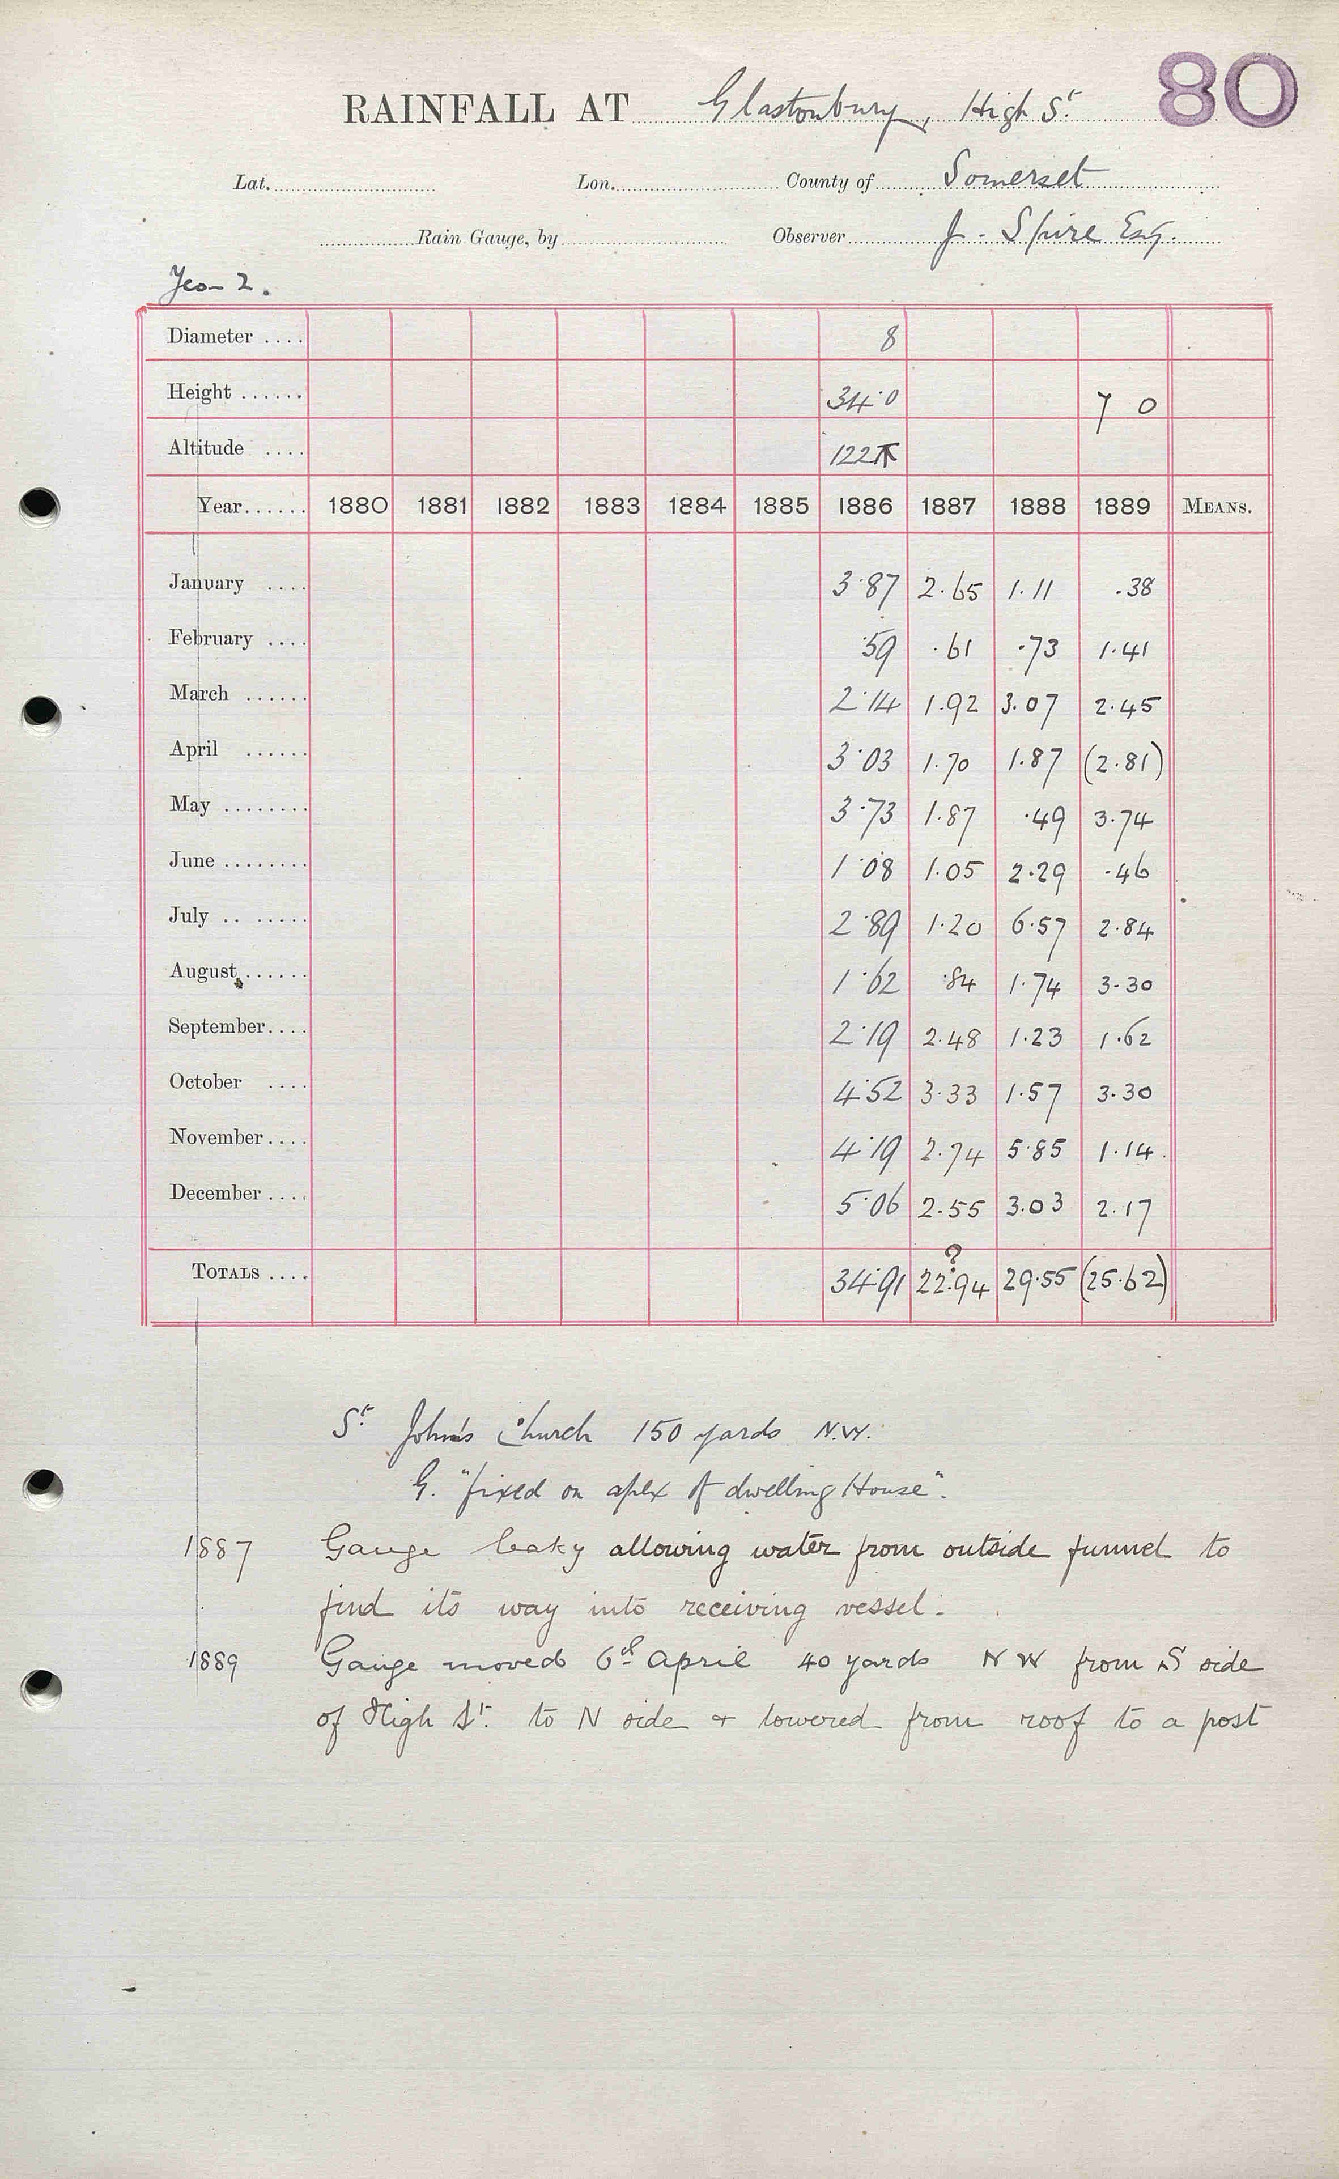 80
RAINFALL AT Glastonbury, High St.
Lat. Lon. County of Somerset
Rain Gauge, by Observer J. Spire Esq.
Yeo 2.
Diameter .... 8
Height ...... 34.0 7 0
Altitude .... 122
Year...... 1880 1881 1882 1883 1884 1885 1886 1887 1888 1889 MEANS.
January .... 3.87 2.65 1.11 .38
February .... .59 .61 .73 1.41
March ...... 2.14 1.92 3.07 2.45
April ...... 3.03 1.70 1.87 (2.81)
May ........ 3.73 1.87 .49 3.74
June ........ 1.08 1.05 2.29 .46
July .. ...... 2.89 1.20 6.57 2.84
August...... 1.62 .84 1.74 3.30
September.... 2.19 2.48 1.23 1.62
October .... 4.52 3.33 1.57 3.30
November.... 4.19 2.74 5.85 1.14
December .... 5.06 2.55 3.03 2.17
?
TOTALS .... 34.91 22.94 29.55 (25.62)
St. John's Church 150 yards N.W.
G. "fixed on apex of dwelling House".
1887 Gauge leaky allowing water from outside funnel to
find its way into receiving vessel.
1889 Gauge moved 6th April 40 yards N W from S side
of High St. to N side + lowered from roof to a post